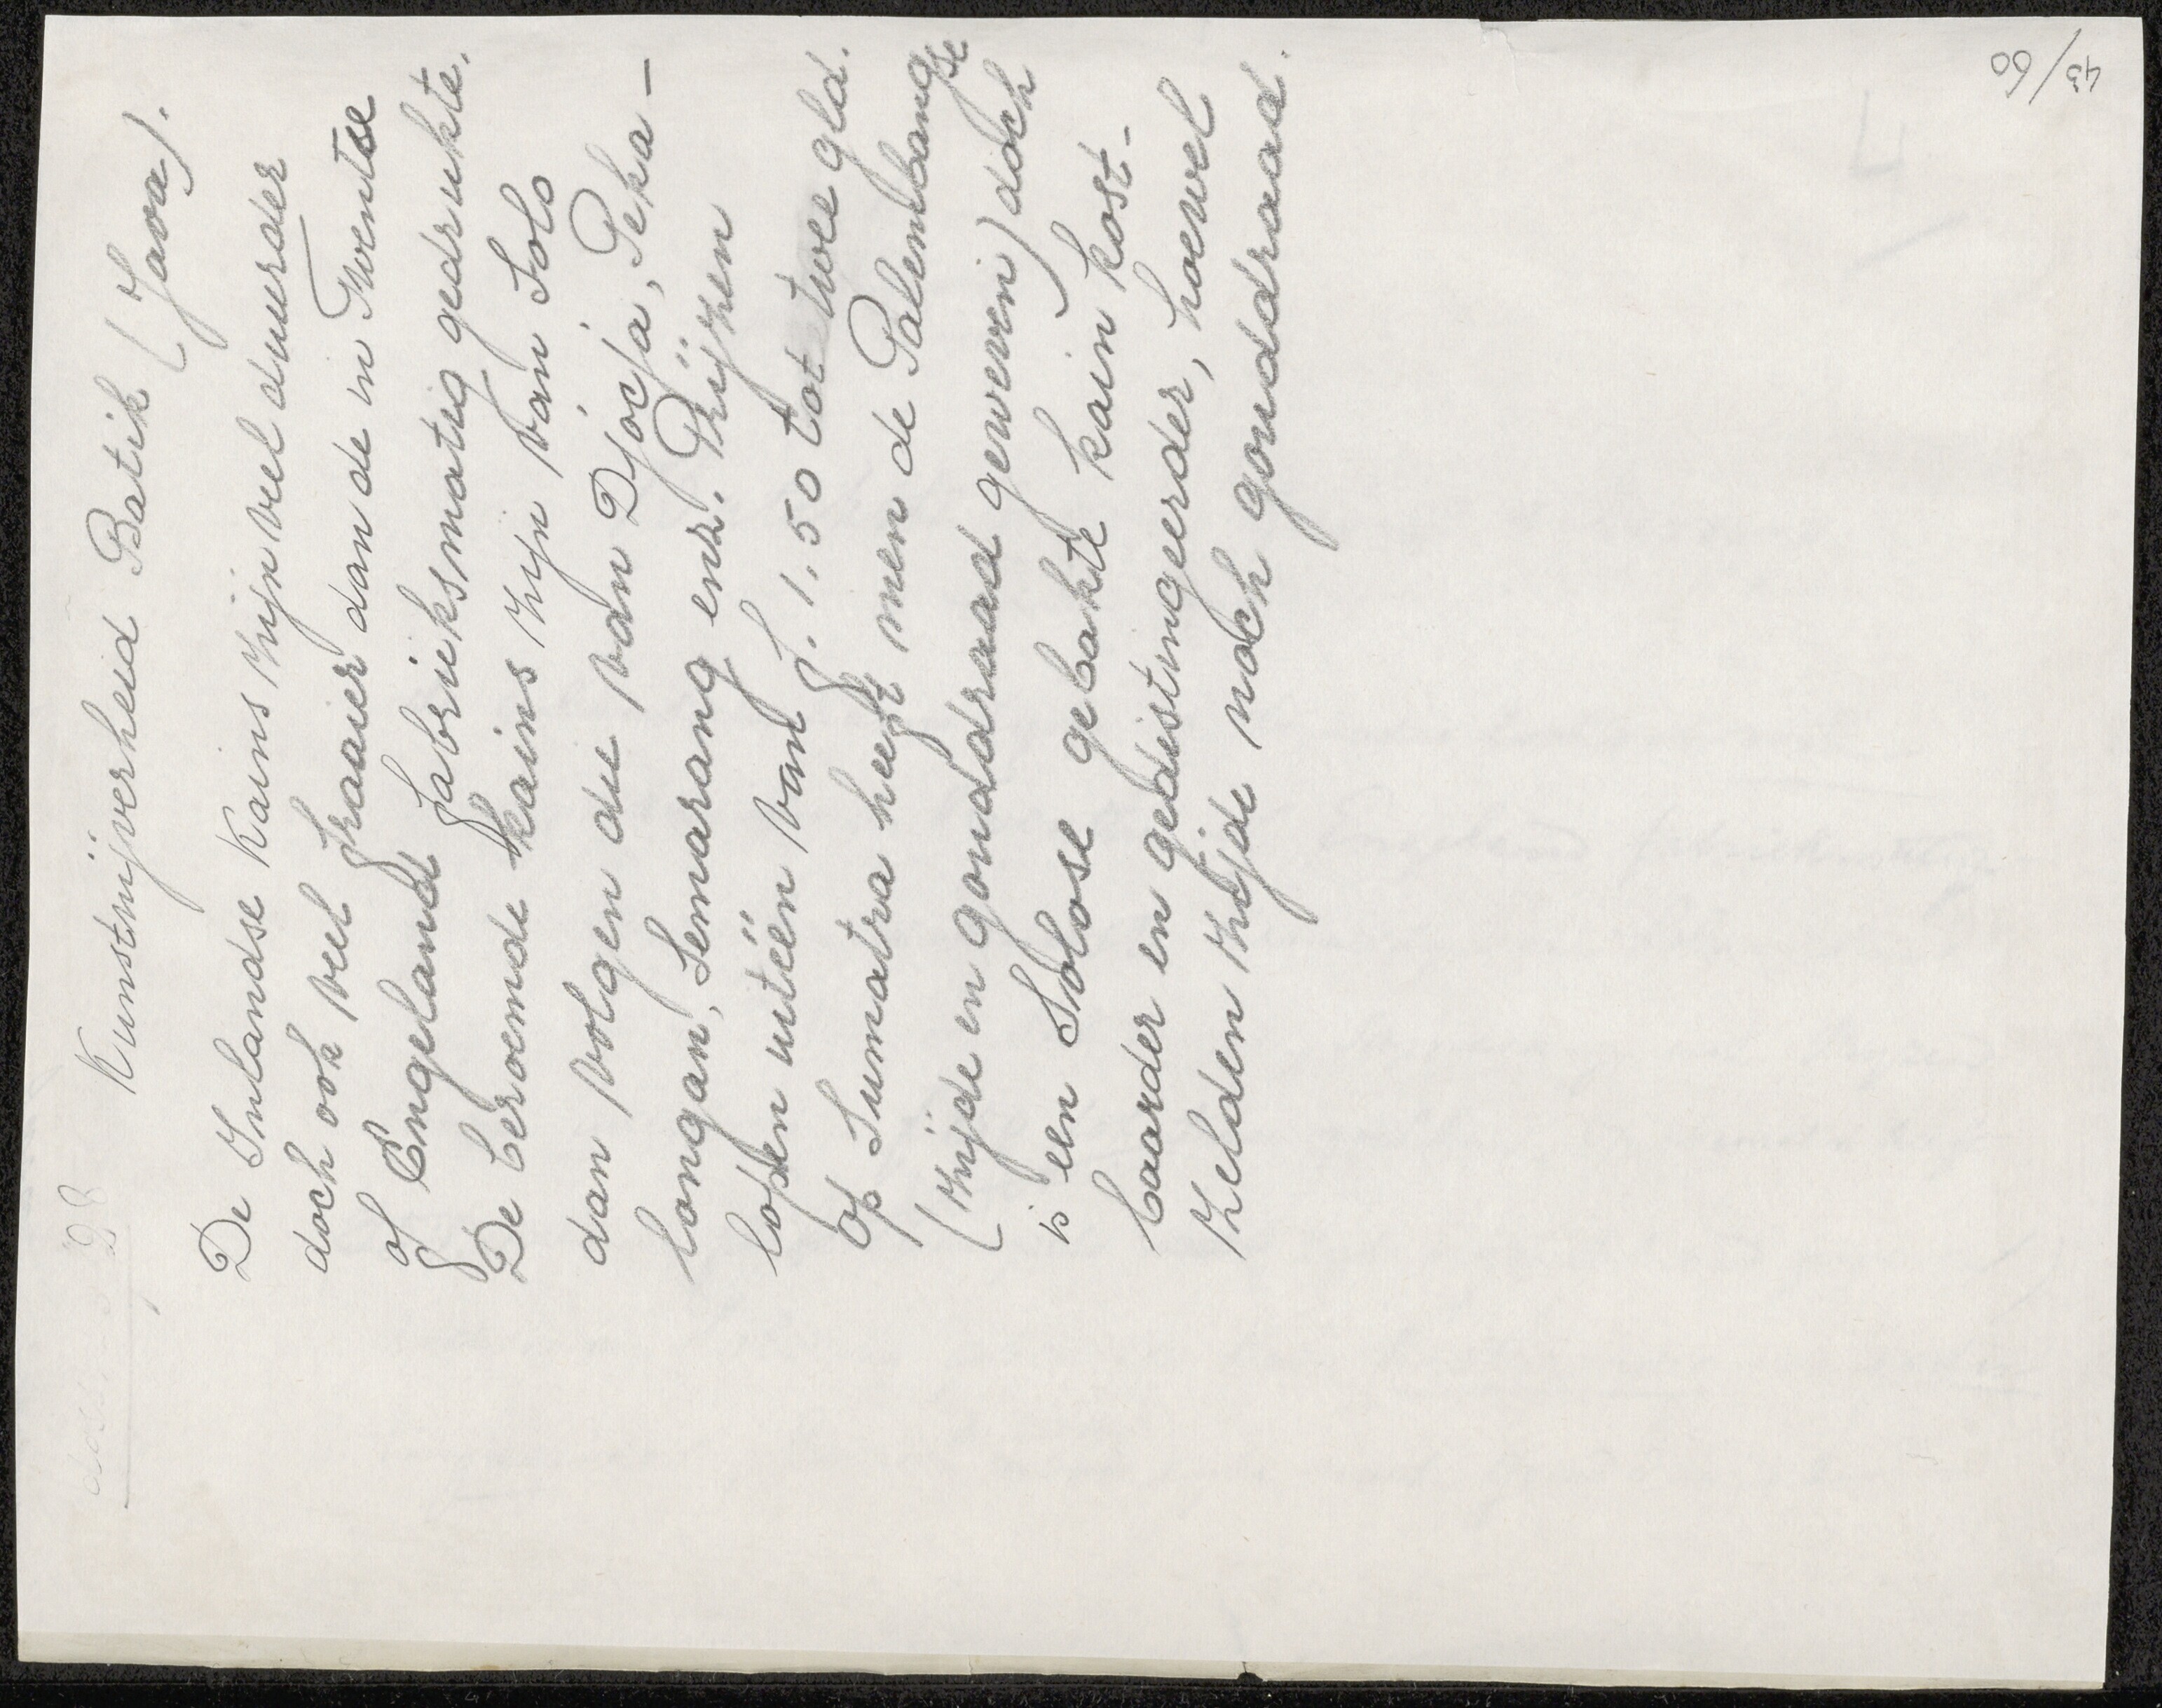 Kunstnijverheid Batik (Java).
De Inlandse Kains zijn veel duurder
doch ook veel fraaier dan de in Twentse
of Engeland fabrieksmatig gedrukte.
De beroemde kains zijn van Solo
dan volgen die van Djocja, Peka-
longan, Semarang enz. Prijzen
lopen uitéén van f. 1.50 tot twee gld.
Op Sumatra heeft men de Palembangse
(zijde en gouddraad geweven) doch
is een Solose gebakte kain kost-
baarder en gedistingeerder, hoewel
zelden zijde noch gouddraad.
43/60